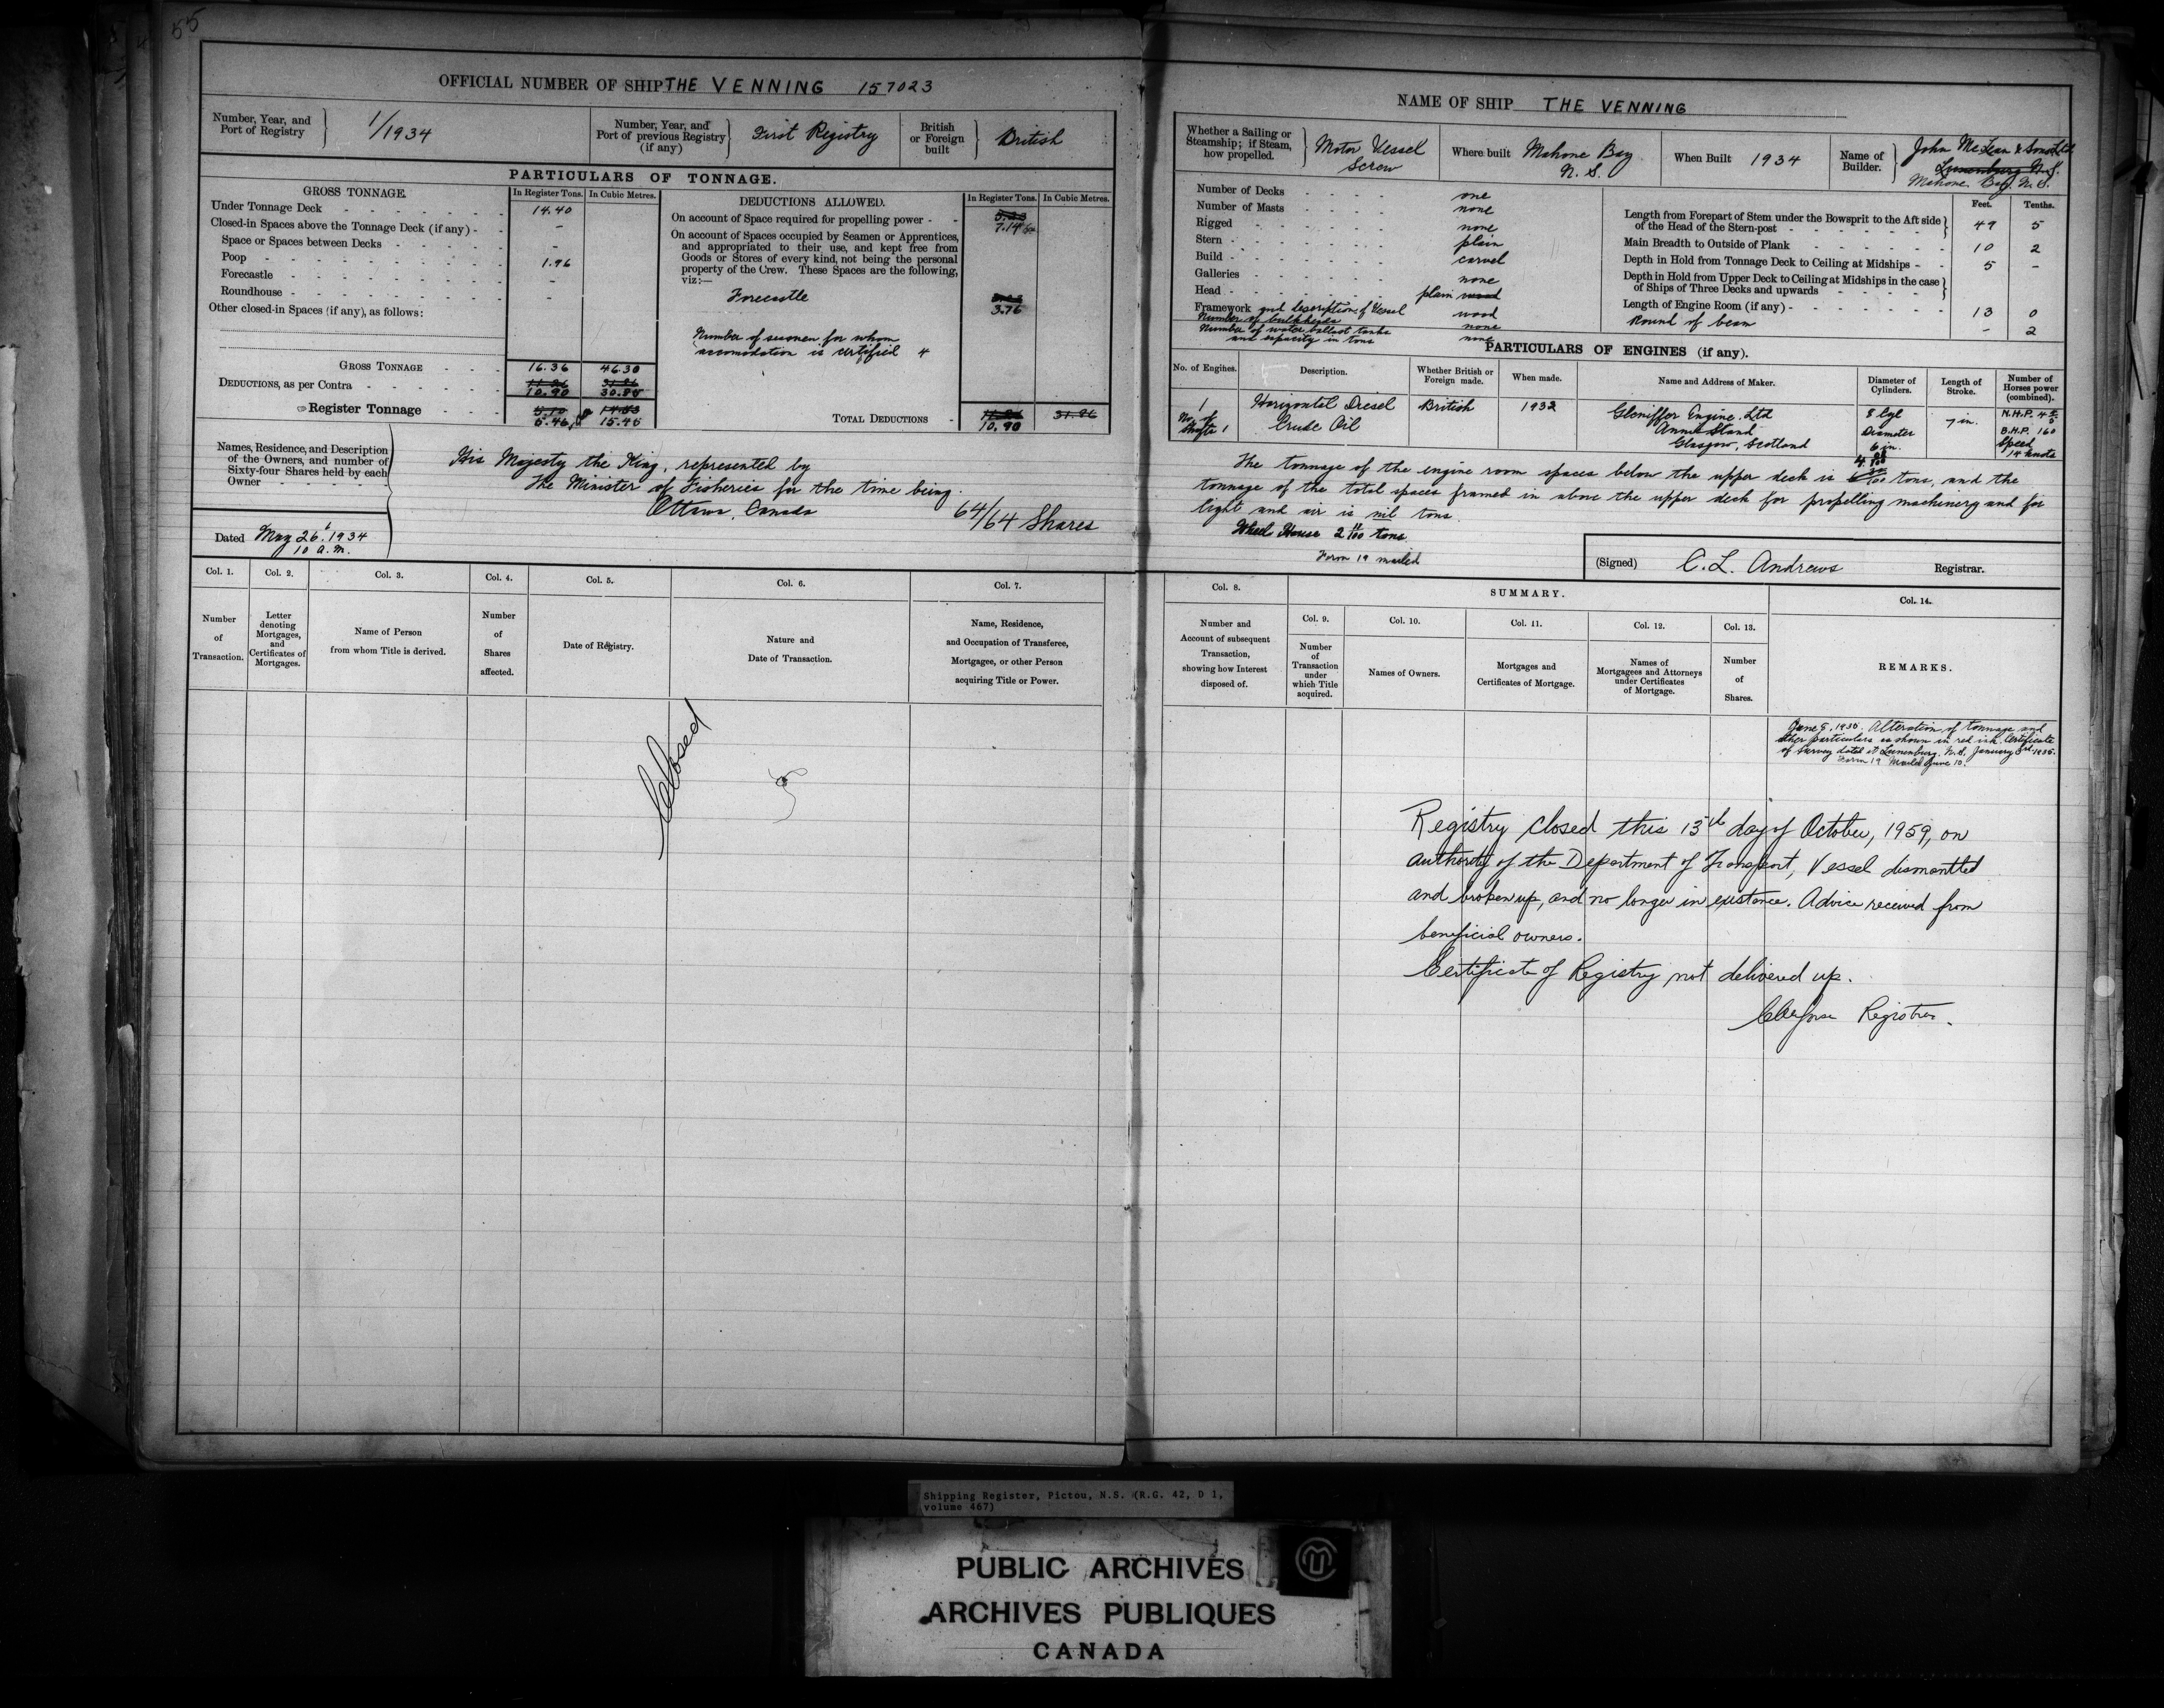 55
OFFICIAL NUMBER OF SHIP THE VENNING 157023
Number, Year, and Port of Registry
1/1934
Number, Year, and Port of previous Registry (if any)
First Registry
British or Foreign built
British
PARTICULARS OF TONNAGE.
GROSS TONNAGE.
In Register Tons. In Cubic Metres.
Under Tonnage Deck 14.40
Closed-in Spaces above the Tonnage Deck (if any) -
Space or Spaces between Decks -
Poop 1.96
Forecastle -
Roundhouse -
Other closed-in Spaces (if any), as follows:
GROSS TONNAGE 16.36 46.30
DEDUCTIONS, as per Contra 11.26 31.86
10.90 30.85
Register Tonnage 5.10 14.43
5.46 15.45
DEDUCTIONS ALLOWED.
In Register Tons. In Cubic Metres.
On account of Space required for propelling power
7.14
On account of Spaces occupied by Seamen or Apprentices, and appropriated to their use, and kept free from Goods or Stores of every kind, not being the personal property of the Crew. These Spaces are the following, viz:—
Forecastle
3.76
Number of seamen for whom
accomodation is certified 4
TOTAL DEDUCTIONS 11.26 31.86
10.90
Names, Residence, and Description of the Owners, and number of Sixty-four Shares held by each Owner
His Majesty the King, represented by
The Minister of Fisheries for the time being.
Ottawa, Canada 64/64 Shares
Dated May 26, 1934
10 a.m.
Col. 1. Col. 2. Col. 3. Col. 4. Col. 5. Col. 6. Col. 7.
Number of Transaction.
Letter denoting Mortgages, and Certificates of Mortgages.
Name of Person from whom Title is derived.
Number of Shares affected.
Date of Registry.
Nature and Date of Transaction.
Name, Residence, and Occupation of Transferee, Mortgagee, or other Person acquiring Title or Power.
Closed
NAME OF SHIP THE VENNING
Whether a Sailing or Steamship; if Steam, how propelled.
Motor Vessel
Screw
Where built
Mahone Bay
N. S.
When Built 1934
Name of Builder.
John McLean & Sons Ltd
Lunenburg N.S.
Mahone Bay. N.S.
Number of Decks one
Number of Masts none
Rigged none
Stern plain
Build carvel
Galleries none
Head plain wood
Framework and description of Vessel wood
Number of bulkheads none
Number of water ballast tanks
and capacity in tons none
Feet. Tenths.
Length from Forepart of Stem under the Bowsprit to the Aft side of the Head of the Stern-post 49 5
Main Breadth to Outside of Plank 10 2
Depth in Hold from Tonnage Deck to Ceiling at Midships 5 -
Depth in Hold from Upper Deck to Ceiling at Midships in the case of Ships of Three Decks and upwards
Length of Engine Room (if any) 13 0
Round of beam - 2
PARTICULARS OF ENGINES (if any).
No. of Engines. Description. Whether British or Foreign made. When made. Name and Address of Maker. Diameter of Cylinders. Length of Stroke. Number of Horses power (combined).
1
No. of Shafts 1
Horizontal Diesel
Crude Oil
British
1932
Gleniffer Engine, Ltd
Anniesland
Glasgow, Scotland
8 Cyl
Diameter
6 in.
7 in.
N.H.P.
B.H.P. 160
Speed
14 knots
The tonnage of the engine room spaces below the upper deck is tons, and the
tonnage of the total spaces framed in above the upper deck for propelling machinery and for
light and air is nil tons.
Wheel House 2 11/100 tons
Form 19 mailed
(Signed) C. L. Andrews Registrar.
Col. 8. SUMMARY. Col. 14.
Col. 9. Col. 10. Col. 11. Col. 12. Col. 13.
Number and Account of subsequent Transaction, showing how Interest disposed of.
Number of Transaction under which Title acquired.
Names of Owners.
Mortgages and Certificates of Mortgage.
Names of Mortgagees and Attorneys under Certificates of Mortgage.
Number of Shares.
REMARKS.
Alteration of tonnage and
other particulars as shown in red ink. Certificate
of Survey dated at Lunenburg, N.S, January 3rd
Form 19 Mailed June 10.
Registry closed this 13th day of October, 1959, on
authority of the Department of Transport, Vessel dismantled
and broken up, and no longer in existence. Advice received from
beneficial owners.
Certificate of Registry not delivered up.
Registrar.
Shipping Register, Pictou, N.S. (R.G. 42, D 1,
volume 467)
PUBLIC ARCHIVES
ARCHIVES PUBLIQUES
CANADA